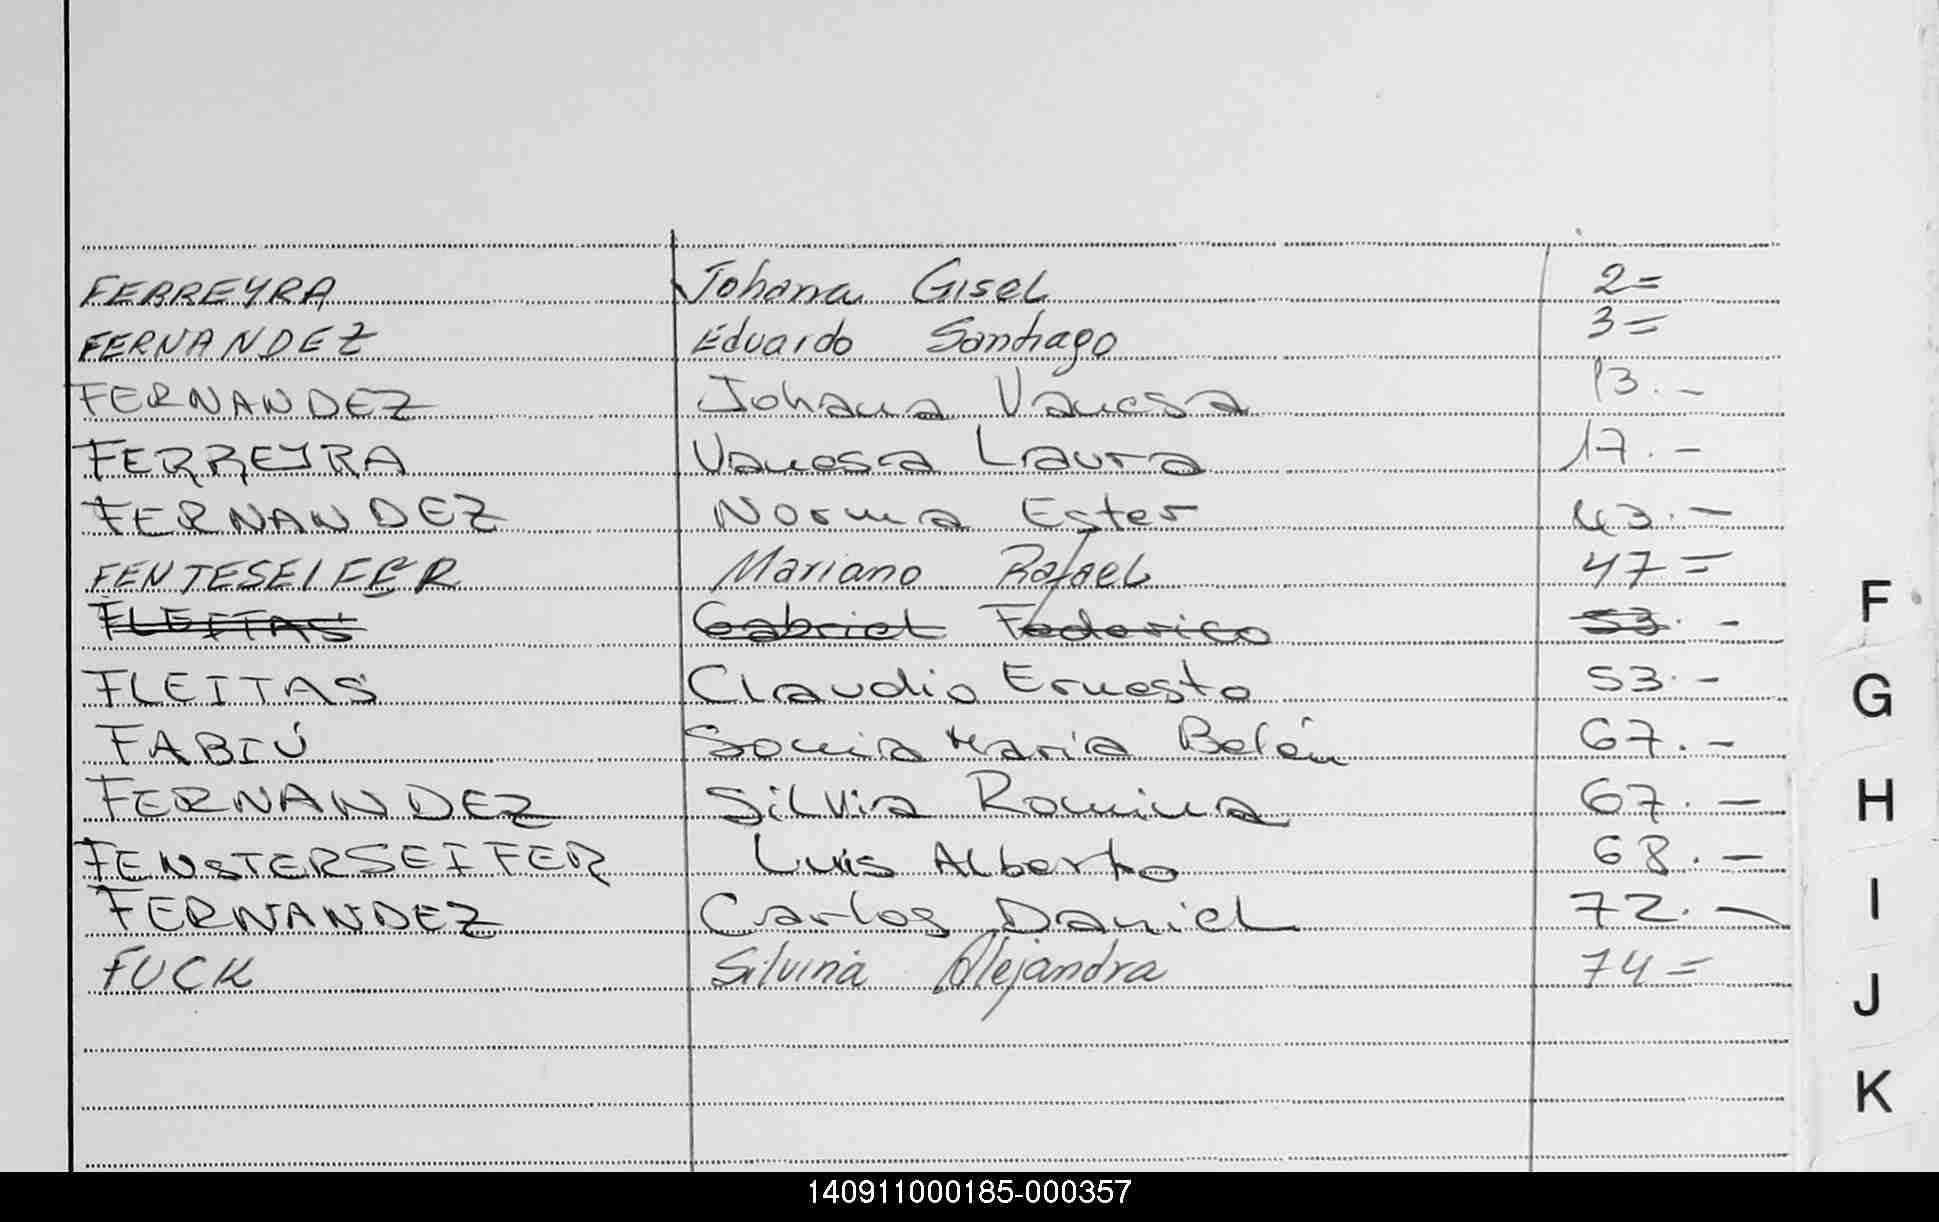 FERREYRA Johana Gisel 2=
FERNANDEZ Eduardo Santiago 3=
FERNANDEZ Johana Vanesa 13.-
FERREYRA Vanesa Laura 17.-
FERNANDEZ Norma Ester 43.-
FENTESEIFER Mariano Rafael 47=
FLEITAS Gabriel Federico 53.-
FLEITAS Claudio Ernesto 53.-
FABIÚ Sonia María Belén 67.-
FERNANDEZ Silvia Romina 67.-
FENSTERSEIFER Luis Alberto 68.-
FERNANDEZ Carlos Daniel 72.-
FUCK Silvina Alejandra 74=
F
G
H
I
J
K
140911000185-000357